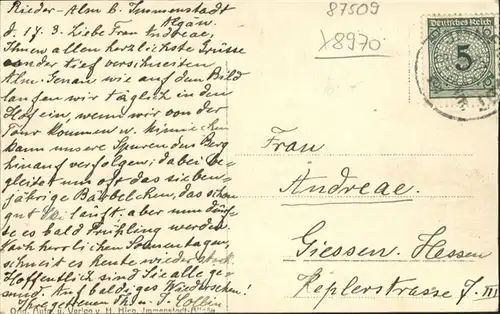 Rieder-Alm b. Immenstadt
Algäu.
d. 17. 3. Liebe Frau Andreae,
Ihnen allen herzlichste Grüsse
von der tief verschneiten
Alm. Genau wie auf dem Bild
laufen wir täglich in den
Hof ein, wenn wir von der
Tour kommen u. 
kann unsere Spuren den Berg
hinauf verfolgen; dabei be-
gleitet uns oft das sieben-
jährige Bärbelchen, das schon
gut Ski läuft. aber nun dürf
te es bald Frühling werden
nach herrlichen Sonnentagen,
schneit es heute wieder
Hoffentlich sind Sie alle ge-
sund. Auf baldiges Wiedersehen!
Ihre getreuen Th. u. J. Collin
Orig. Aufn. u. Verlag v. H. Hirn, Immenstadt-Allgäu
87509
18970
Deutsches Reich
5
Frau
Andreae.
Giessen. Hessen
Keplerstrasse 7 III